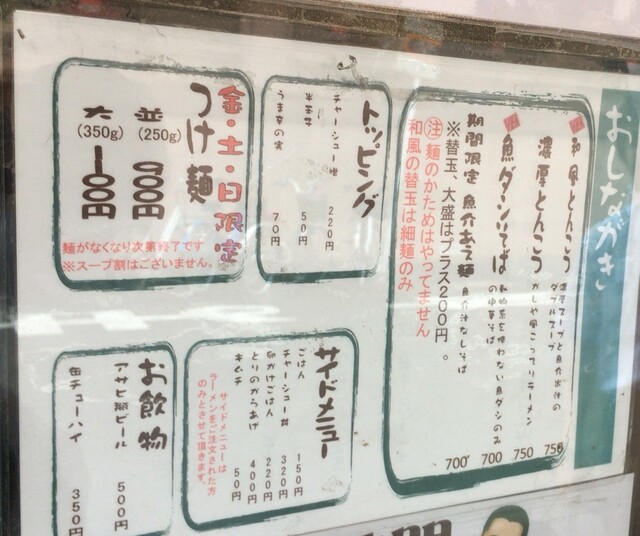 おしながき
和風とんこつ
濃厚スープと魚介出汁の
ダブルスープ
750
濃厚とんこつ
むかしや風こってりラーメン
750
魚ダシそば
動物系を使わない魚ダシのみ
の中華そば
700
期間限定 魚介あえ麺 魚介汁なしそば
700
※替玉、大盛はプラス200円。
注 麺のかためはやってません
和風の替玉は細麺のみ
トッピング
チャーシュー増 220円
半玉子 50円
うま辛の実 70円
金・土・日限定
つけ麺
並(250g) 900円
大(350g) 1000円
麺がなくなり次第終了です
※スープ割はございません。
サイドメニュー
ごはん 150円
チャーシュー丼 320円
卵かけごはん 220円
とりのからあげ 400円
キムチ 50円
サイドメニューは
ラーメンをご注文された方
のみとさせて頂きます。
お飲物
アサヒ瓶ビール 500円
缶チューハイ 350円